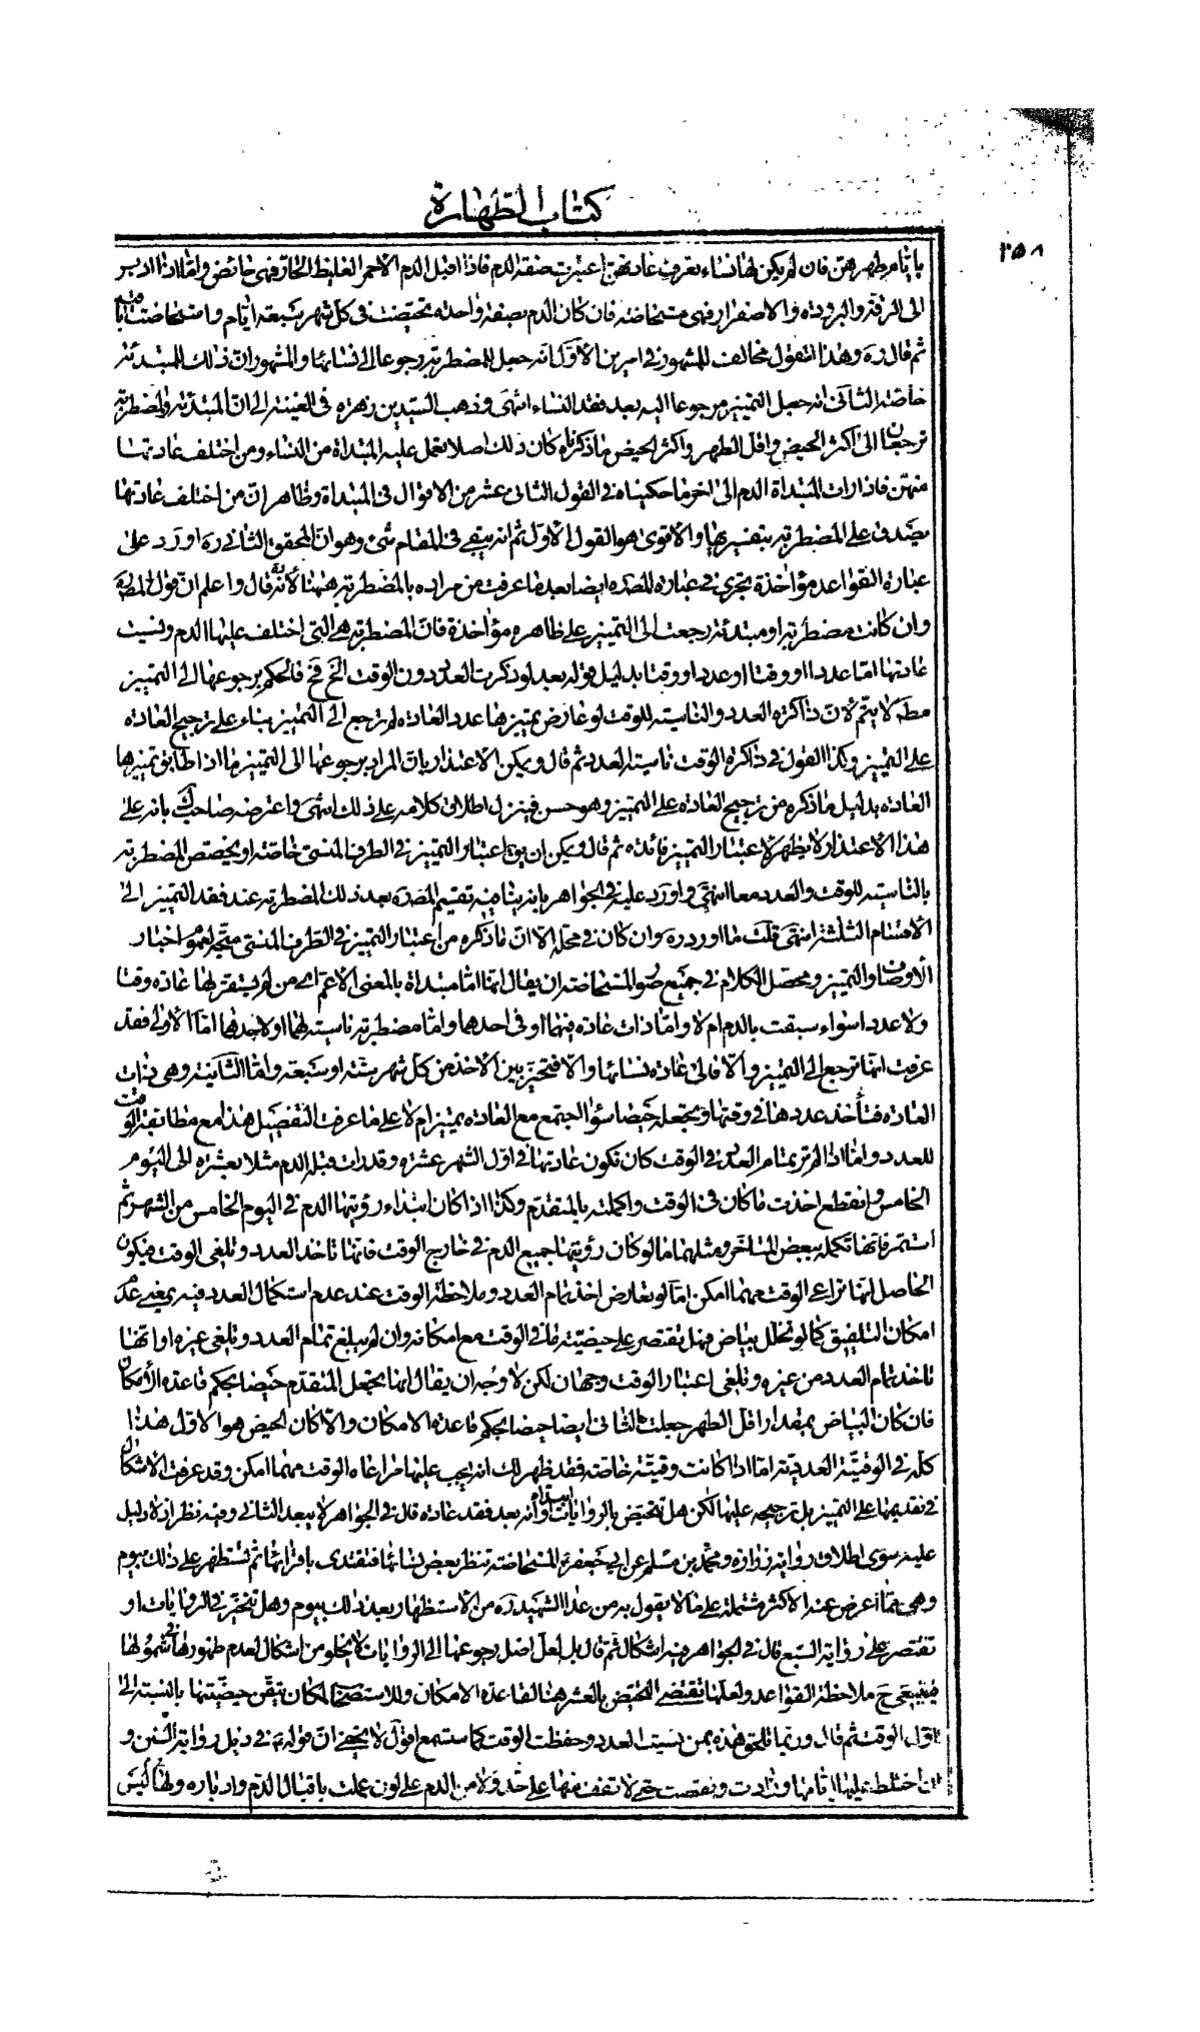 كتاب الطهارة
٢٥٨
بايام طهرهن فان لم يكن لها نساء تعرف عادتهن اعتبرت صفة الدم فاذا اقبل الدم الاحمر الغليظ الحار فهي حائض واما اذا ادبر
الى الرقة والبرودة والاصفرار فهي مستحاضة فان كان الدم بصفة واحدة تحيضت في كل شهر سبعة ايام واستحاضت باقيه
ثم قال ره وهذا القول مخالف للمشهور في امرين الاول انه جعل للمضطربة رجوعا الى نسائها والمشهور ان ذلك للمبتدئة
خاصة الثاني انه جعل التمييز مرجوعا اليه بعد فقد النساء انتهى وذهب السيد بن زهرة في الغنية الى ان المبتدئة والمضطربة
ترجعان الى اكثر الحيض واقل الطهر واكثر الحيض ما ذكرناه كان ذلك اصلا يعمل عليه المبتداة من النساء ومن اختلف عادتها
منهن فاذا رات المبتداة الدم الى اخر ما حكيناه في القول الثاني عشر من الاقوال في المبتداة وظاهر ان من اختلف عادتها
يصدق على المضطربة بتفسيريها والاقوى هو القول الاول ثم انه بقي في المقام شئ وهو ان المحقق الثاني ره اورد على
عبارة القواعد مؤاخذة تجري في عبارة المصه ايضا بعد ما عرفت من مراده بالمضطربة هيهنا لانه قال واعلم ان قول المصه
وان كانت مضطربة او مبتدئة رجعت الى التمييز على ظاهره مؤاخذة فان المضطربة هي التي اختلف عليها الدم ونسيت
عادتها اما عددا او وقتا او عددا ووقتا بدليل قوله بعد لو ذكرت العدد دون الوقت الخ فح فالحكم برجوعها الى التمييز
مطه لا يتم لان ذاكرة العدد والناسية للوقت لو عارض تمييزها عدد العادة لم ترجع الى التمييز بناء على ترجيح العادة
على التمييز وكذا القول في ذاكرة الوقت ناسية العدد ثم قال ويمكن الاعتذار بان المراد برجوعها الى التمييز ما اذا طابق تمييزها
العادة بدليل ما ذكره من ترجيح العادة على التمييز وهو حسن فينزل اطلاق كلامه على ذلك انتهى واعترضه صاحب ك بانه على
هذا الاعتذار لا يظهر لاعتبار التمييز فائدة ثم قال ويمكن ان يق اعتبار التمييز في الطرف المنسى خاصة او يخصص المضطربة
بالناسية للوقت والعدد معا انتهى واورد عليه في الجواهر بانه ينافيه تقسيم المصه بعد ذلك المضطربة عند فقد التمييز الى
الاقسام الثلثة انتهى قلت ما اورده وان كان في محله الا ان ما ذكره من اعتبار التمييز في الطرف المنسى متجه لعموم اخبار
الاوصاف والتمييز ومحصل الكلام في جميع صور المستحاضة ان يقال انها اما مبتداة بالمعنى الاعم اى من لم يستقر لها عادة وقتا
ولا عددا سواء سبقت بالدم ام لا واما ذات عادة فيهما او في احدهما واما مضطربة ناسية لهما او لاحدهما اما الاولى فقد
عرفت انها ترجع الى التمييز والا فالى عادة نسائها والا فتحيز بين الاخذ من كل شهر ستة او سبعة واما الثانية وهي ذات
العادة فتأخذ عددها في وقتها وتجعله حيضا سواء اجتمع مع العادة تمييز ام لا على ما عرفت التفصيل هذا مع مطابقة الوقت
للعدد واما اذا لم تر تمام العدد في الوقت كان تكون عادتها في اول الشهر عشرة وقد رات قبله الدم مثلا بعشرة الى اليوم
الخامس وانقطع اخذت ما كان في الوقت واكملته بالمتقدم وكذا اذا كان ابتداء رؤيتها الدم في اليوم الخامس من الشهر ثم
استمر فانها تكمله ببعض المتاخر ومثلهما ما لو كان رؤيتها جميع الدم في خارج الوقت فانها تاخذ العدد وتلغى الوقت فيكون
الحاصل انها تراعى الوقت مهما امكن اما لو تعارض اخذ تمام العدد وملاحظة الوقت عند عدم استكمال العدد فيه بمعنى عدم
امكان التلفيق كما لو تخلل بياض فهل يقتصر على حيضية ما في الوقت مع امكانه وان لم يبلغ تمام العدد وتلغى غيره او انها
تاخذ تمام العدد من غيره وتلغى اعتبار الوقت وجهان لكن لا وجه ان يقال انها تجعل المتقدم حيضا بحكم قاعدة الامكان
فان كان البياض بمقدار اقل الطهر جعلت الثانى ايضا حيضا بحكم قاعدة الامكان والا كان الحيض هو الاول هذا
كله في الوقتية العددية اما اذا كانت وقتية خاصة فقد ظهر لك انه يجب عليها مراعاة الوقت مهما امكن وقد عرفت الاشكال
في تقديمها على التمييز بل ترجيحه عليها لكن هل تتحيض بالروايات ابتداء او انه بعد فقد عادة قال في الجواهر لا يبعد الثانى وفيه نظر اذ لا دليل
عليه سوى اطلاق رواية زرارة ومحمد بن مسلم عن ابي جعفر ع المستحاضة تنظر بعض نسائها فتقتدى باقرائها ثم تستظهر على ذلك بيوم
وهي مما اعرض عنه الاكثر مشتملة على ما لا يقول به من عدا الشهيد ره من الاستظهار بعد ذلك بيوم وهل تتخير في الروايات او
تقتصر على رواية السبع قال في الجواهر فيه اشكال ثم قال بل لعل اصل رجوعها الى الروايات لا يخلو من اشكال لعدم ظهورها في شمولها
فينبغى ح ملاحظة القواعد ولعلها تقتضى التحيض بالعشر هنا لقاعدة الامكان وللاستصحاب لمكان تيقن حيضيتها بالنسبة الى
اول الوقت ثم قال وربما تلحق هذه بمن نسيت العدد وحفظت الوقت كما ستسمع اقول لا يخفى ان قوله ع في ذيل رواية السنن و
ان اختلط عليها ايامها وزادت ونقصت حتى لا تقف منها على حد ولا من الدم على لون عملت باقبال الدم وادباره ولها ليس